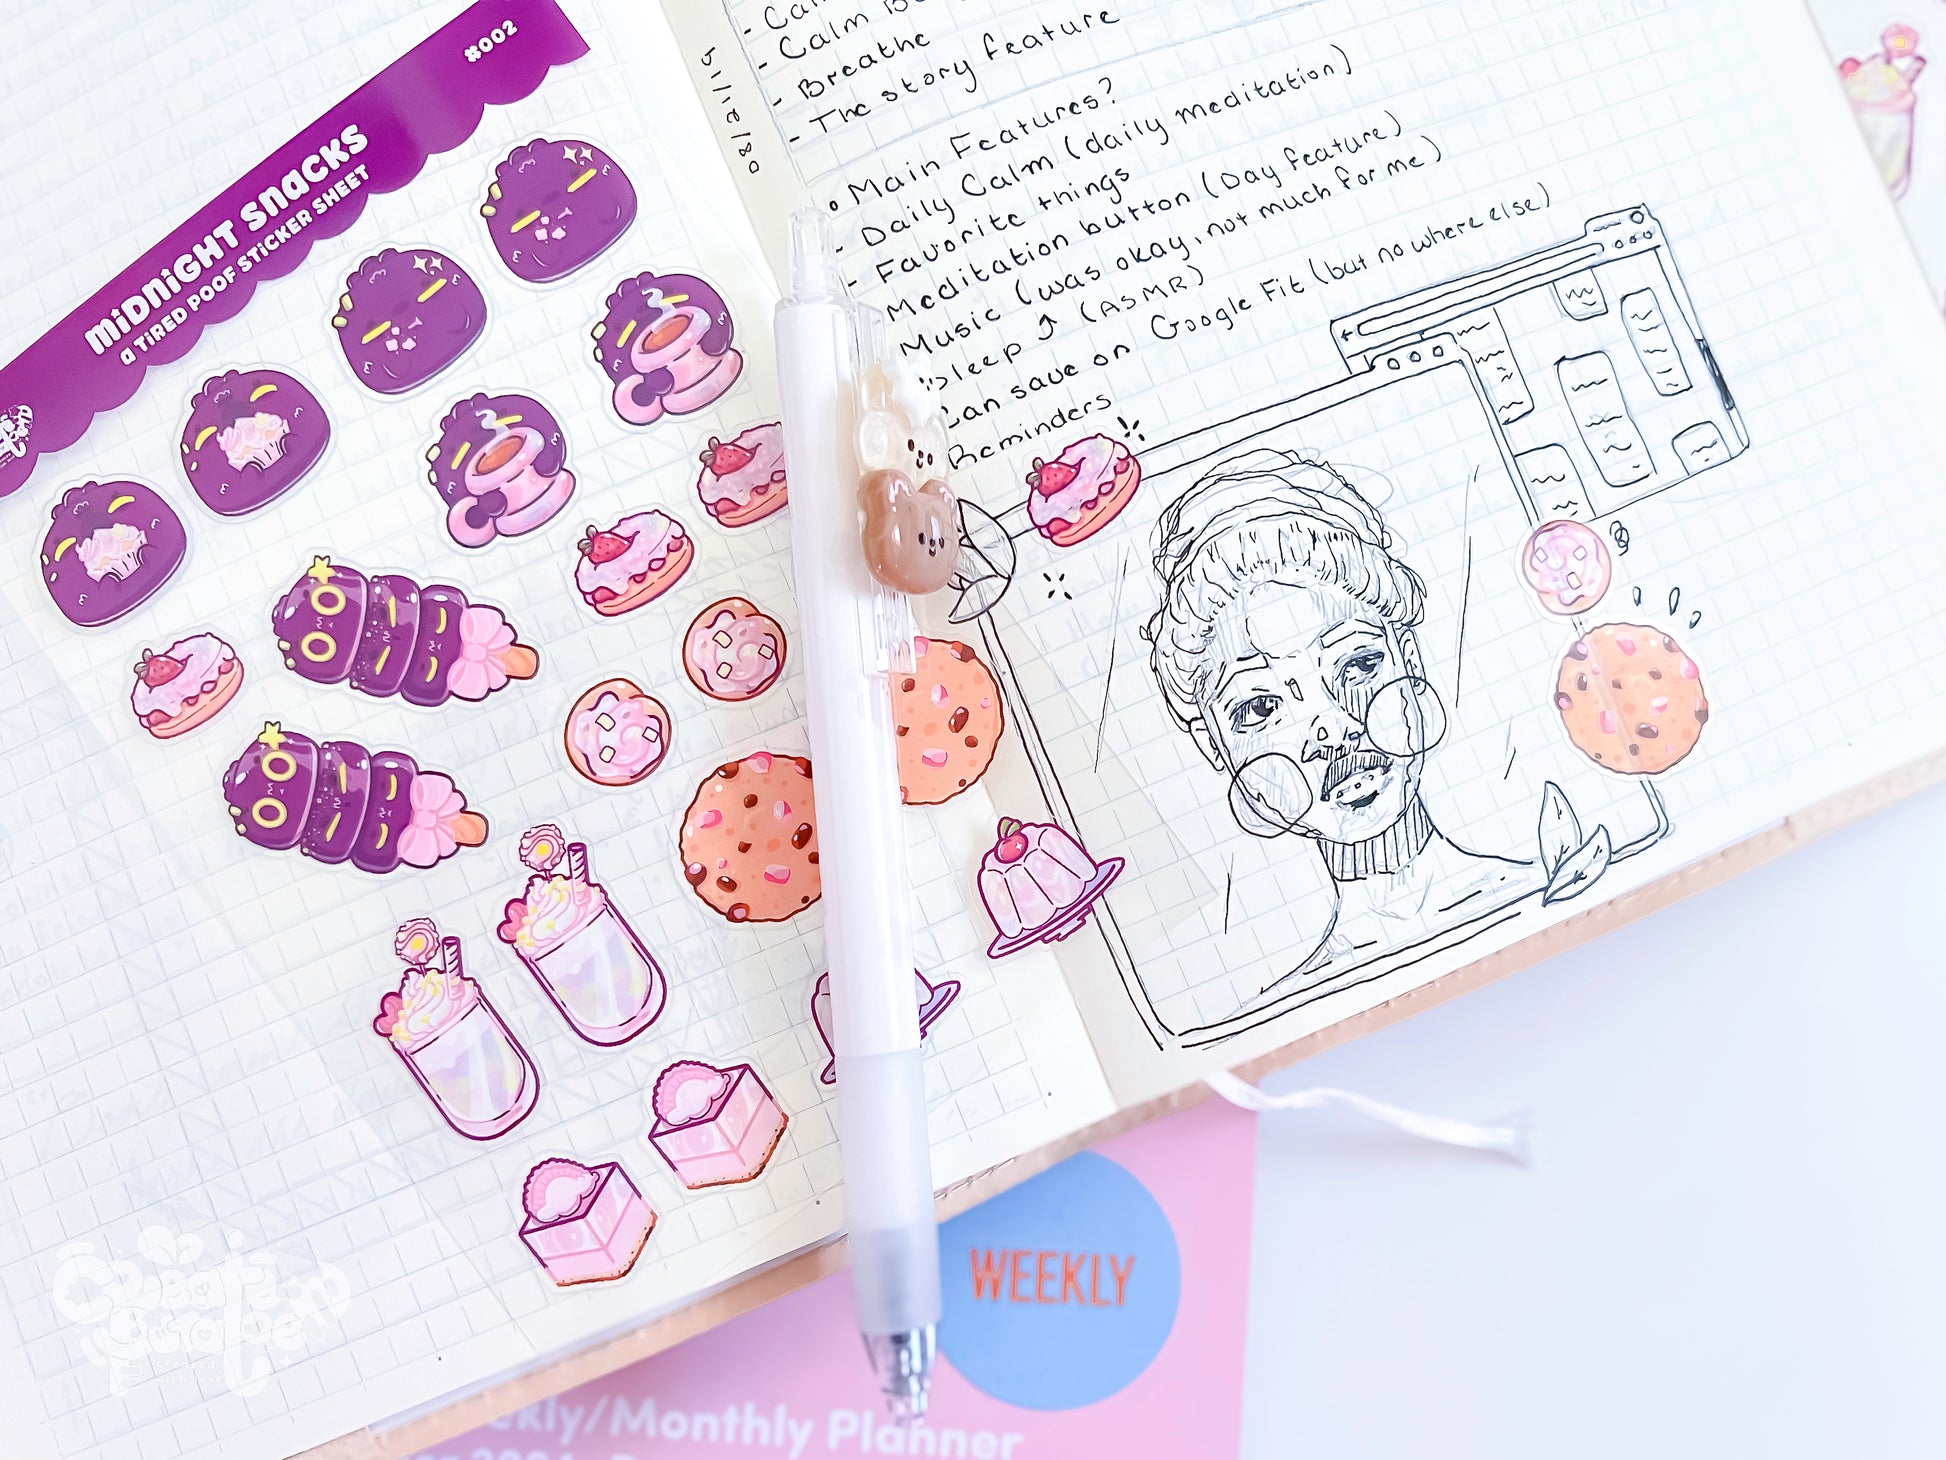 #002
MiDNiGHT SnaCKS
a TiRED POOF STiCKER SHEET
- Calm
- Breathe
- The story feature
Main Features?
- Daily Calm (daily meditation)
- Favorite things
Meditation button (Day feature)
Music (was okay, not much for me)
Sleep ↑ (ASMR)
Can save on Google Fit (but no where else)
Reminders
WEEKLY
Weekly/Monthly Planner
Creation
created
with love